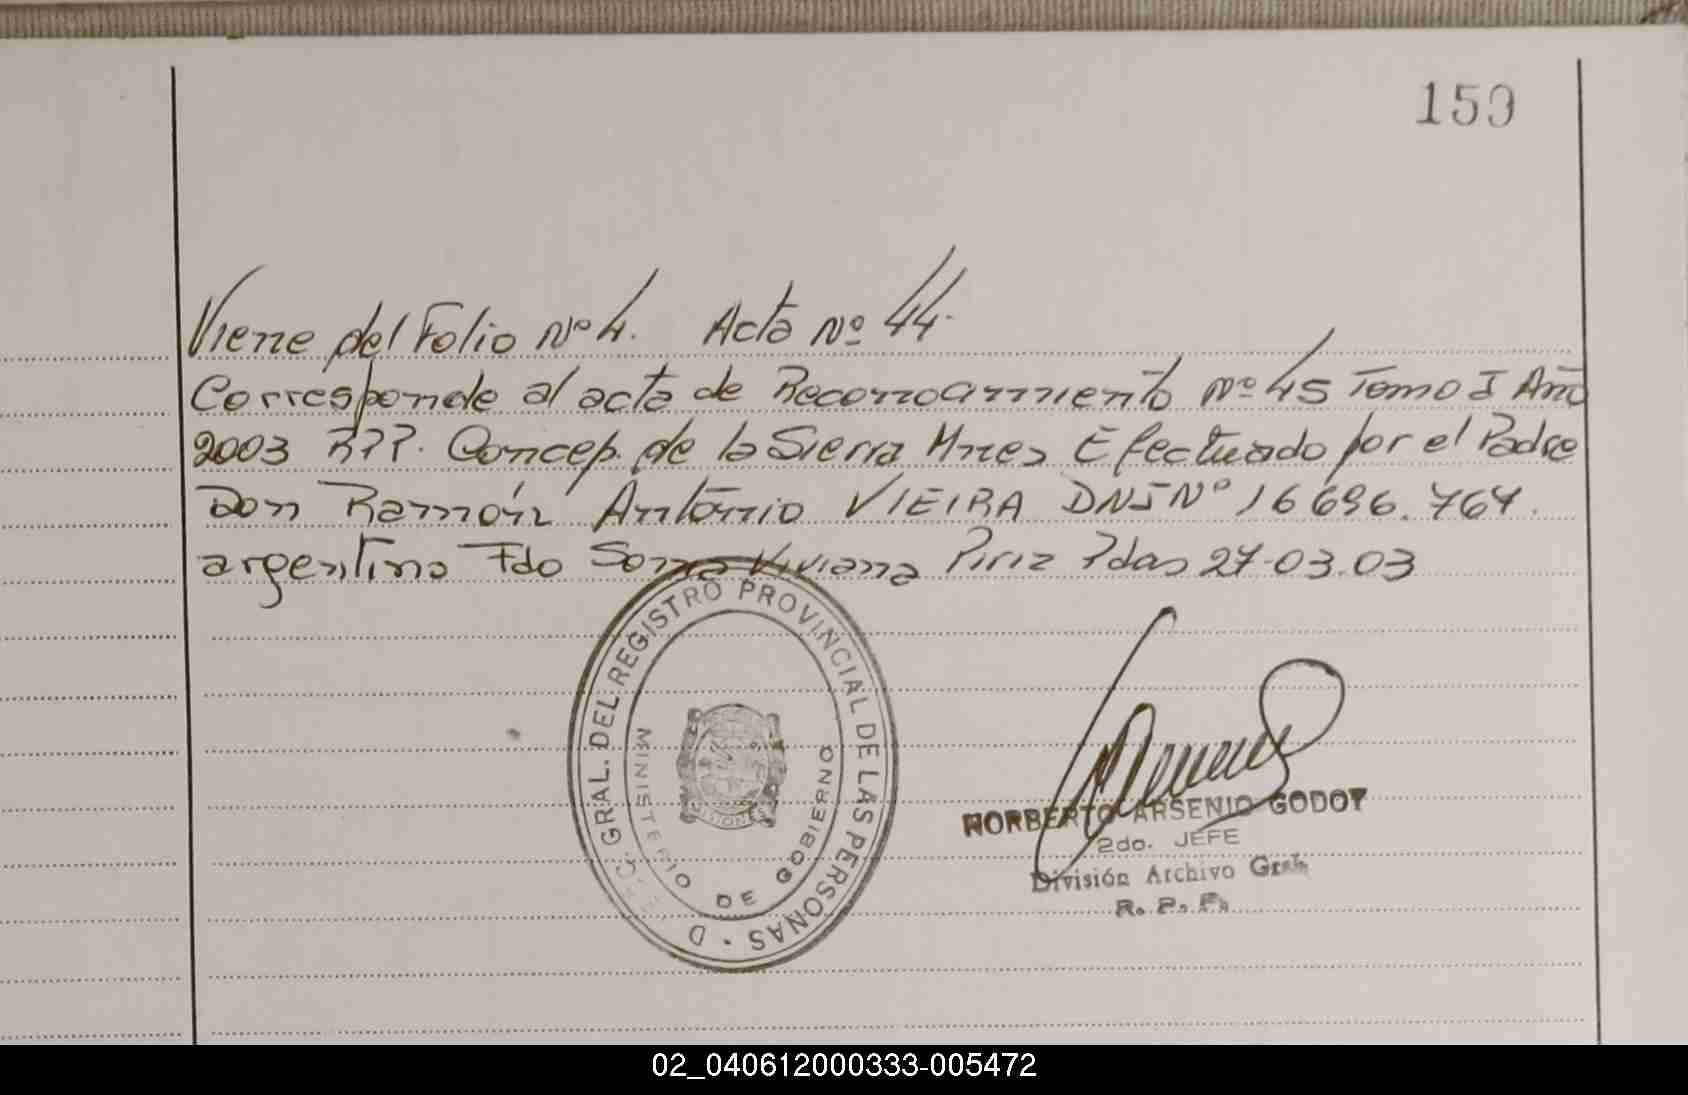 159
Viene del Folio Nº 4. Acta Nº 44.
Corresponde al acta de Reconocimiento Nº 45 Tomo I Año
2003 RPP. Concep. de la Sierra Mnes Efectuado por el Padre
Don Ramón Antonio VIEIRA DNI Nº 16 696.764.
argentino Fdo Sonia Viviana Piriz Pdas 27-03.03
GRAL. DEL REGISTRO PROVINCIAL DE LAS PERSONAS · D
MINISTERIO DE GOBIERNO
MISIONES
NORBERTO ARSENIO GODOY
2do. JEFE
División Archivo Gral.
R. P. P.
02_040612000333-005472